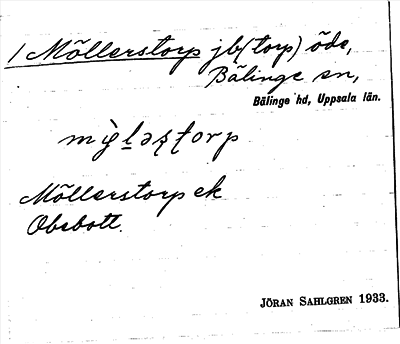 1 Möllerstorp jb(torp) öde,
Bälinge sn,
Bälinge hd, Uppsala län.
Möllerstorp ek
Obebott.
JÖRAN SAHLGREN 1933.